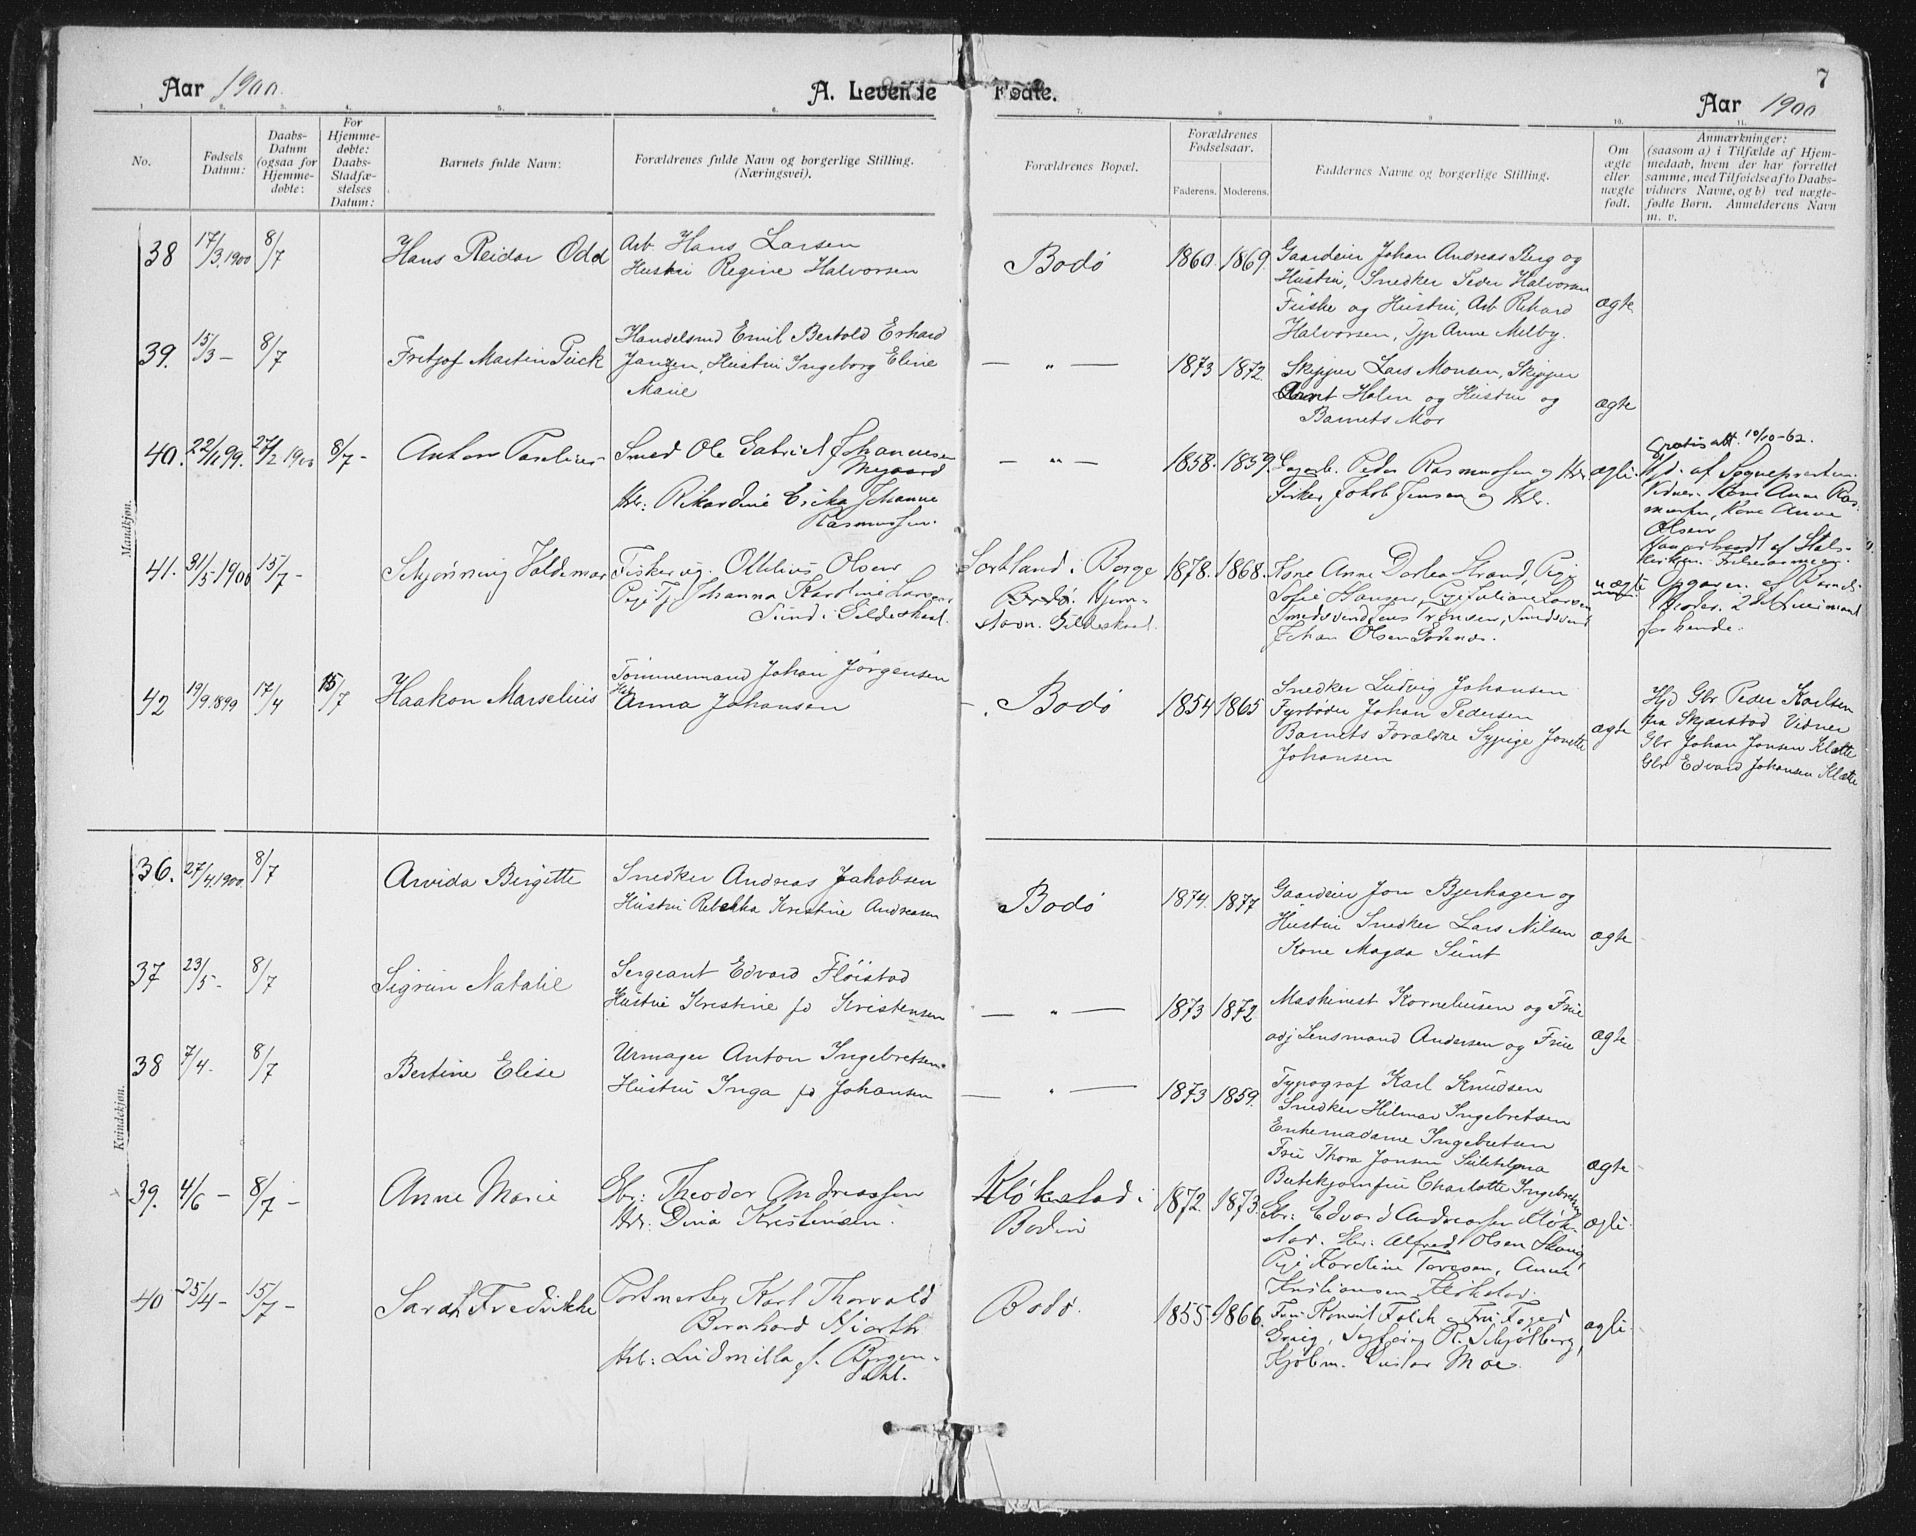 7
Aar 1900.
A. Levende Fødte.
Aar 1900
1. 2. 3. 4. 5. 6. 7. 8 9. 10. 11.
No.
Fødsels Datum:
Daabs-Datum (ogsaa for Hjemmedøbte:
For Hjemmedøbte: Daabs-Stadfæstelses Datum:
Barnets fulde Navn:
Forældrenes fulde Navn og borgerlige Stilling.
(Næringsvei).
Forældrenes Bopæl.
Forældrenes Fødselsaar.
Faderens. Moderens.
Faddernes Navne og borgerlige Stilling.
Om ægte eller uægte født.
Anmærkninger:
(saasom a) i Tilfælde af Hjem-
medaab, hvem der har forrettet
samme, med Tilføielse af to Daabs-
vidners Navne, og b) ved uægte-
fødte Børn. Anmelderens Navn
m. v.
Mandkjøn.
38 17/3.1900 8/7 Hans Reidar Odd
Arb. Hans Larsen
Hustru Regine Halvorsen
Bodø 1860. 1869.
Gaardeier Johan Andreas Berg og
Hustru, Snedker Peder Halvorsen
Friske og Hustru, Arb. Rikard
Halvorsen, Typ Anne Melby.
ægte
39. 15/3 – 8/7 Fritjof Martin Pück
Handelsmd Emil Bertold Erhard
Janzen, Hustru Ingeborg Eline
Marie
— " — 1873 1872.
Skipper Lars Monsen, Skipper
Arnt Holm og Hustru og
Barnets Mor
ægte
40. 22/11 99. 27/2 1900 8/7 – Anton Paulius
Smed Ole Gabriel Johannesen
Nygaard
Hr: Rikardine Erika Johanne
Rasmussen.
— " — 1858. 1859.
Peder Rasmussen og Hr
Fisker Jakob Jensen og Hr.
ægte.
Gratis att. 10/10-62.
Hjd. af Sognepresten.
Vidner: Kone Anne Ras-
mussen, Kone Anna
Olsen
41. 31/5 1900 15/7 – Schjønning Valdemar
Fisker ug. Ottelius Olsen
Pige Johanna Karoline Larsen,
Sund i Gildeskaal.
Sortland i Borge
Bodø. Hjem-
stavn. Gildeskaal.
1878. 1868.
Kone Anne Dorlea Strand, Pige
Sofie Hansen, Pige Juliane Larsen
Smedsvend Jens Tronsen, Smedsvend
Johan Olsen Godønes.
uægte
af Stats-
kirken.
Opgaven af Barnets
Moder.
for hende.
42 19/9.1899 17/4 15/7 Haakon Marselius
Tømmermand Johan Jørgensen
Hst Anna Johansen
Bodø 1854 1865
Snedker Ludvig Johansen
Fyrbøder Johan Pedersen
Barnets Forældre Sypige Jonette
Johansen
ægte
Hjd Gbr Peder Karlsen
fra Skjærstad Vidner
Gbr Johan Jonsen Klætte
Gbr Edvard Johansen Klætte
Kvindekjøn.
36. 27/4.1900. 8/7 Arvida Bergitte
Snedker Andreas Jakobsen
Hustru Rebekka Kristine Andreasen
Bodø 1874. 1877
Gaardeier Jon Bjerhager og
Hustru Snedker Lars Nilsen
Kone Magda Sunt
ægte
37 23/5 – 8/7 Sigrun Natalie
Sergeant Edvard Fløistad
Hustru Kristine fd Kristensen
— " — 1873 1872
Maskinist Korneliusen og Frue
adj Lensmand Andersen og Frue
ægte
38 7/4 – 8/7 Bertine Elise
Urmager Anton Ingebretsen
Hustru Inga fd Johansen
— " — 1873 1859.
Typograf Karl Knudsen
Snedker Hilmar Ingebretsen
Enkemadame Ingebretsen
Frue Thora Jonsen
Butikjomfru Charlotte Ingebretsen
ægte
39. 4/6 – 8/7 – Anne Marie
Gbr: Theodor Andreassen
Hr: Dina Kristensen.
Kløkstad i
Bodin
1872. 1873.
Gbr: Edvard Andreassen Kløk-
stad. Hr: Alfred Olsen Skaug,
Pige Kordline Toresen, Anne
Kristiansen Kløkstad.
ægte.
40 25/4 – 15/7 – Sarah Fredrikke
Postmester Karl Thorvald
Bernhard Hjorth
Hr: Ludmilla f. Bergen-
dahl.
Bodø. 1855. 1866.
Fru Konsul Falch, Fru Foged
Greig, R. Schjølberg,
Kjøbm. Gustav Moe.
ægte.